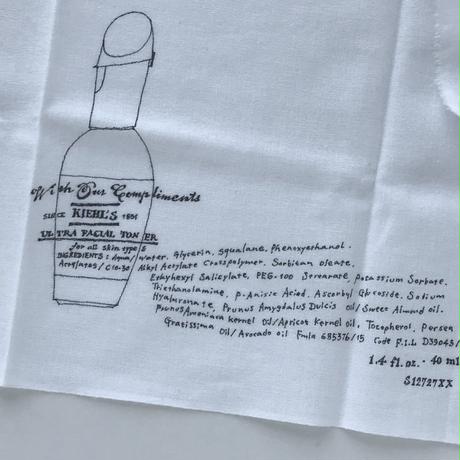 With Our Compliments
SINCE KIEHL'S 1851
ULTRA FACIAL TONER
for all skin types
INGREDIENTS: Aqua/ water. Glycerin, Squalane, Phenoxyethanol.
Acrylates/C10-30 Alkyl Acrylate Crosspolymer. Sorbitan oleate.
Ethyhexyl Salicylate, PEG-100 Strearate, potassium Sorbate.
Triethanolamine, P-Anisic Acid. Ascorbyl Glycoside. Sodium
Hyaluronate, Prunus Amygdalus Dulcis oil/Sweet Almond oil.
prunus Ameniara kernel Oil/Apricot Kernel oil, Tocopherol, Persea
Gratissima Oil/Avocado oil Fmla 685376/15 Code F.I.L D39043/
1.4 fl.oz. - 40 ml
S12727XX